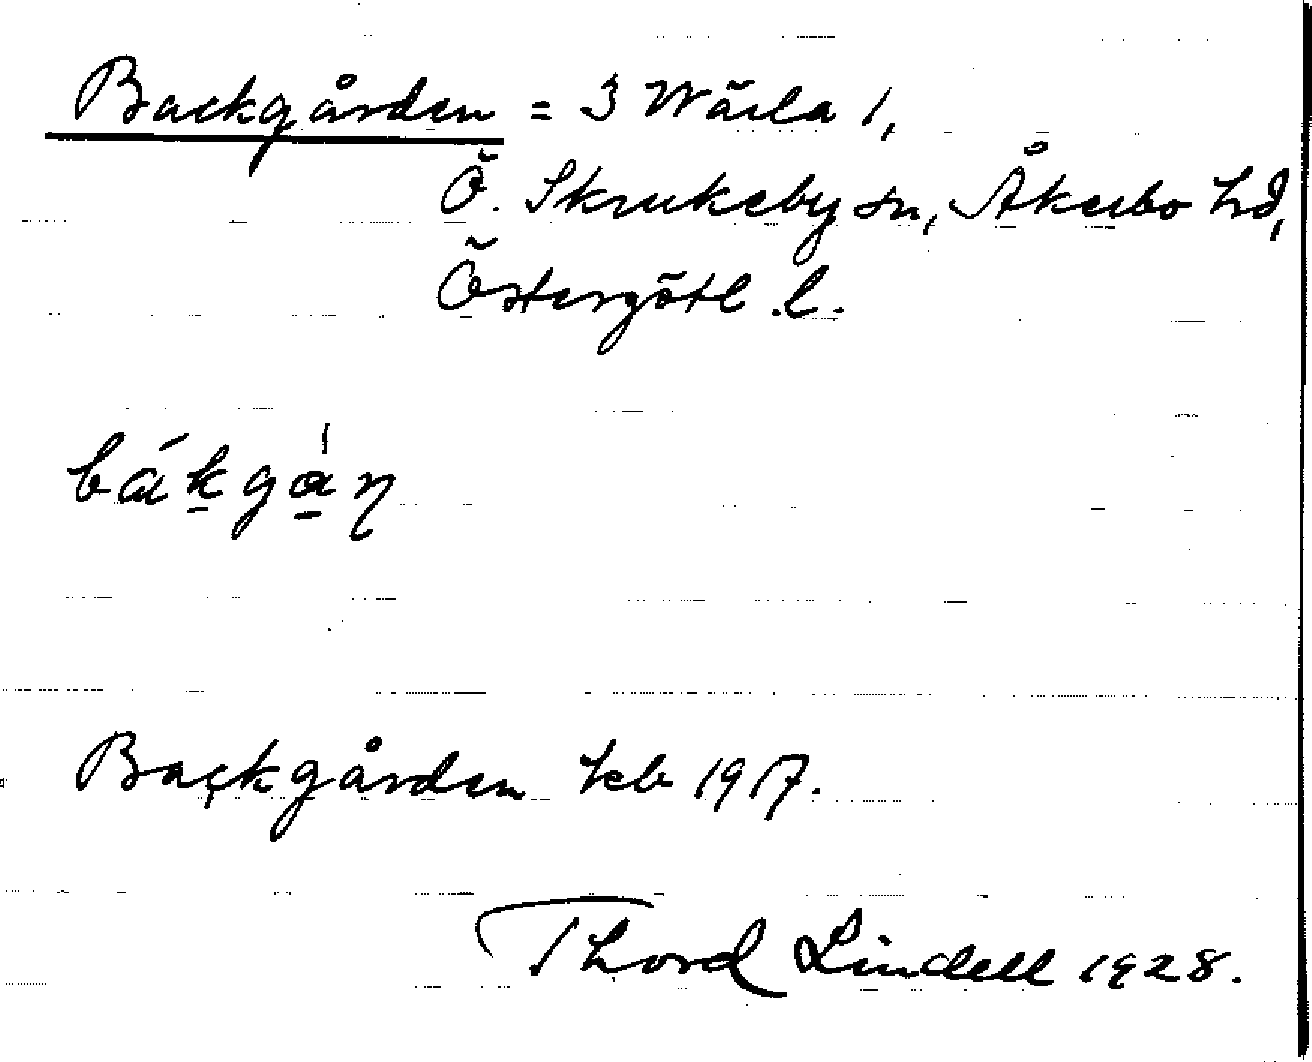 Backgården = 3 Wärla 1,
Ö. Skrukeby sn, Åkerbo hd,
Östergötl. l.
bákgàn
Backgården kb 1917.
Thord Lindell 1928.